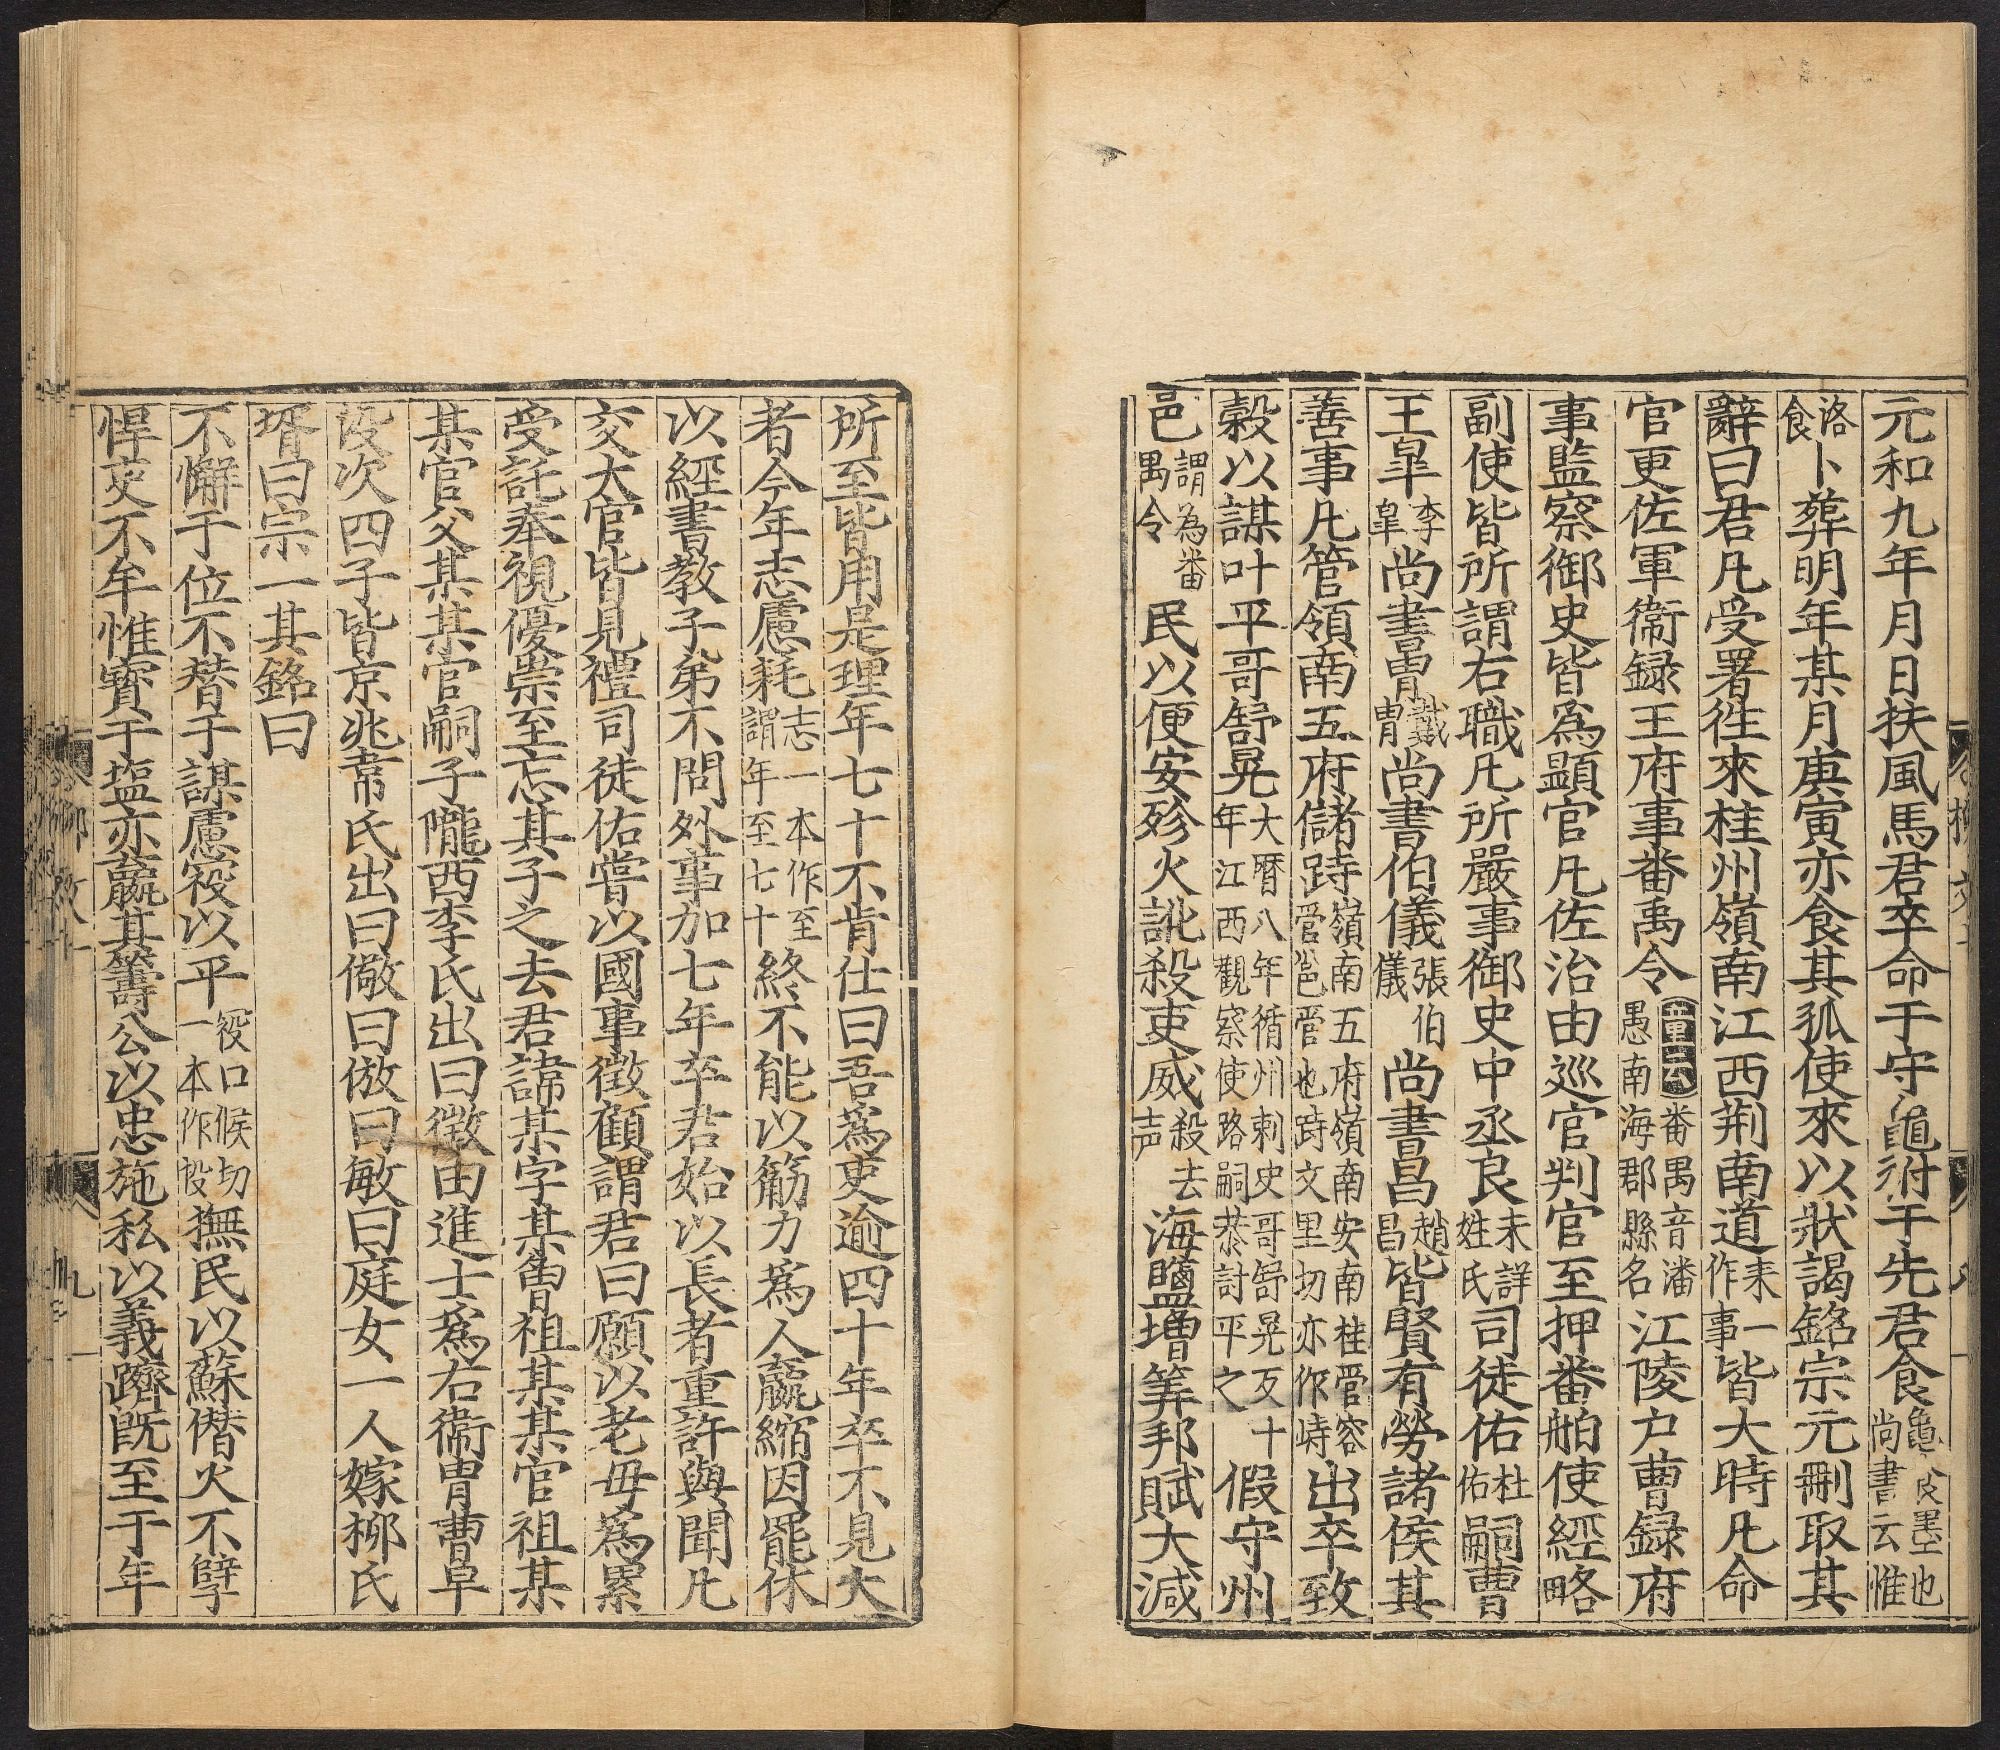 元和九年月日扶風馬君卒命于守龜祔于先君食龜皮墨也尚書云惟
洛食卜葬明年某月庚寅亦食其孤使來以狀謁銘宗元刪取其
辭曰君凡受署徃來桂州嶺南江西荆南道耒一作事皆大時凡命
官更佐軍衞録王府事番禹令童云番禺音潘愚南海郡縣名江陵户曹録府
事監察御史皆爲顯官凡佐治由巡官判官至押番舶使經略
副使皆所謂右職凡所嚴事御史中丞良未詳姓氏司徒佑杜佑嗣曹
王皐李皐尚書冑戴冑尚書伯儀張伯儀尚書昌趙昌皆賢有勞諸侯其
善事凡管領南五府儲跱嶺南五府嶺南安南桂管容管邕管也跱丈里切亦作峙出卒致
穀以謀叶平哥舒晃大曆八年循州刺史哥舒晃反十年江西觀察使路嗣恭討平之假守州
邑謂為番禺令民以便安殄火訛殺吏威殺去声海鹽增筭邦賦大減
所至皆用是理年七十不肯仕曰吾爲吏逾四十年卒不見大
者今年志慮耗志一本作至謂年至七十終不能以筋力爲人羸縮因罷休
以經書教子弟不問外事加七年卒君始以長者重許與聞凡
交大官皆見禮司徒佑嘗以國事徵顧謂君曰願以老母爲累
受託奉視優崇至忘其子之去君諱某字某曾祖某某官祖某
某官父某某官嗣子隴西李氏出曰徵由進士爲右衞冑曹早
没次四子皆京兆韋氏出曰儆曰倣曰敏曰庭女一人嫁柳氏
壻曰宗一其銘曰
不懈于位不替于謀慮䘠以平䘠口候切一本作没撫民以蘇僭火不孼
悍吏不牟惟寶于塩亦羸其籌公以忠施私以義躋既至于年